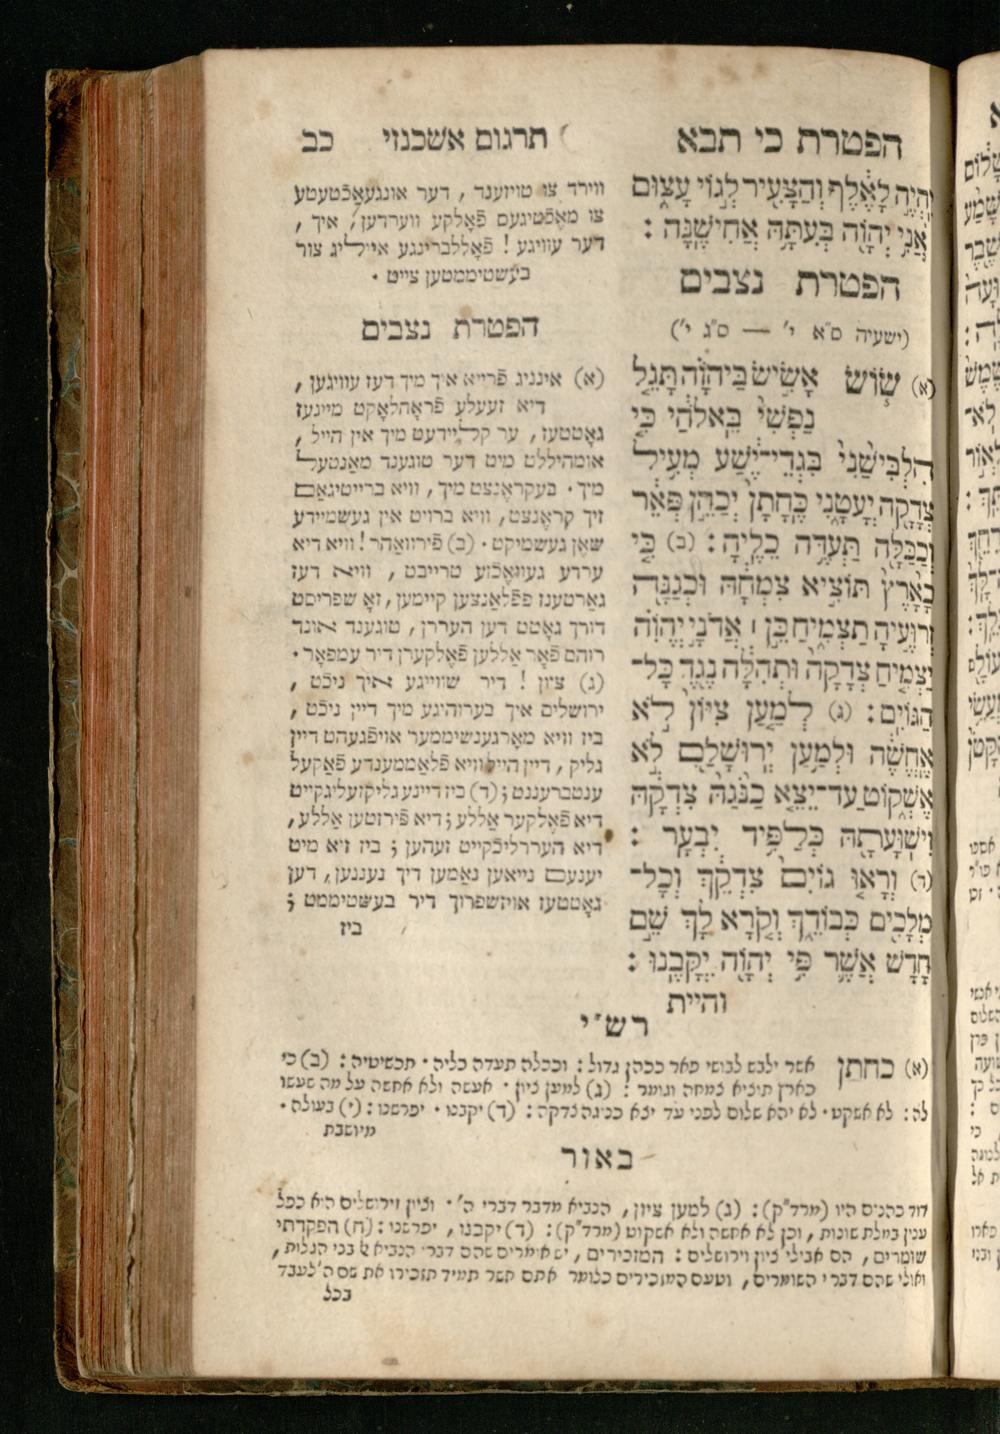 הפטרת כי תבא
וְהָיָה לָאֶלֶף וְהַצָּעִיר לְגוֹי עָצוּם
אֲנִי יְהוָֹה בְּעִתָּהּ אֲחִישֶׁנָּה :
הפטרת נצבים
(ישעיה ס"א י' — ס"ג י')
(א) שׂוֹשׂ אָשִׂישׂ בַּיהוָֹה תָּגֵל
נַפְשִׁי בֵּאלֹהַי כִּי
הִלְבִּישַׁנִי בִּגְדֵי־יֶשַׁע מְעִיל
צְדָקָה יְעָטָנִי כֶּחָתָן יְכַהֵן פְּאֵר
וְכַכַּלָּה תַּעְדֶּה כֵלֶיהָ : (ב) כִּי
כָאָרֶץ תּוֹצִיא צִמְחָהּ וּכְגַנָּה
זֵרוּעֶיהָ תַצְמִיחַ כֵּן ׀ אֲדֹנָי יֱהוִֹה
יַצְמִיחַ צְדָקָה וּתְהִלָּה נֶגֶד כָּל־
הַגּוֹיִם : (ג) לְמַעַן צִיּוֹן לֹא
אֶחֱשֶׁה וּלְמַעַן יְרוּשָׁלַםִ לֹא
אֶשְׁקוֹט עַד־יֵצֵא כַנֹּגַהּ צִדְקָהּ
וִישׁוּעָתָהּ כְּלַפִּיד יִבְעָר :
(ד) וְרָאוּ גוֹיִם צִדְקֵךְ וְכָל־
מְלָכִים כְּבוֹדֵךְ וְקֹרָא לָךְ שֵׁם
חָדָשׁ אֲשֶׁר פִּי יְהוָֹה יִקֳּבֶנּוּ :
והיית
תרגום אשכנזי כב
ווירד צו טויזענד , דער אונגעאכֿטעטע
צו מאֶכֿטיגעם פֿאָלקע ווערדען , איך ,
דער עוויגע ! פֿאָללברינגע אייליג צור
בעשטיממטען צייט .
הפטרת נצבים
(א) אינניג פֿרייא איך מיך דעז עוויגען ,
דיא זעעלע פֿראָהלאָקט מיינעז
גאָטטעז , ער קליידעט מיך אין הייל ,
אומהיללט מיט דער טוגענד מאַנטעל
מיך . בעקראֶנצט מיך , וויא ברייטיגאַם
זיך קראֶנצט , וויא ברויט אין געשמיידע
שאֶן געשמיקט . (ב) פֿירוואַהר ! וויא דיא
ערדע געוואֶכֿזע טרייבט , וויא דעז
גאַרטענז פפֿלאַנצען קיימען , זאָ שפריסט
דורך גאָטט דען העררן , טוגענד אונד
רוהם פֿאָר אַללען פֿאֶלקערן דיר עמפאָר .
(ג) ציון ! דיר שווייגע איך ניכֿט ,
ירושלים איך בערוהיגע מיך דיין ניכֿט ,
ביז וויא מאָרגענשיממער אויפֿגעהט דיין
גליק , דיין הייל וויא פֿלאַממענדע פֿאַקעל
ענטברעננט ; (ד) ביז דיינע גליקזעליגקייט
דיא פֿאֶלקער אַללע ; דיא פֿירזטען אַללע ,
דיא העררליכֿקייט זעהען ; ביז זיא מיט
יענעם נייאען נאַמען דיך נעננען , דען
גאָטטעז אויזשפרוך דיר בעשטיממט ;
ביז
רש"י
(א) כחתן אשר ילבש לבושי פאר ככהן גדול : וככלה תעדה כליה . תכשיטיה : (ב) כי
כארץ תוציא צמחה וגומר : (ג) למען ציון . אעשה ולא אחשה על מה שעשו
לה : לא אשקט . לא יהא שלום לפני עד יצא כנוגה צדקה : (ד) יקבנו . יפרשנו : (י) בעולה .
מיושבת
באור
דוד כהנים היו (מרד"ק) : (ג) למען ציון , הנביא מדבר דברי ה' . וציון וירושלים הוא כפל
ענין במלת שונות , וכן לא אחשה ולא אשקוט (מרד"ק) : (ד) יקבנו , יפרשנו : (ח) הפקדתי
שומרים , הם אבילי ציון וירושלים : המזכירים , יש אומרים שהם דברי הנביא ל בני הגלות ,
ואולי שהם דברי השומרים , וטעם המזכירים כלומר אתם אשר תמיד תזכירו את שם ה' לעבד
בכל